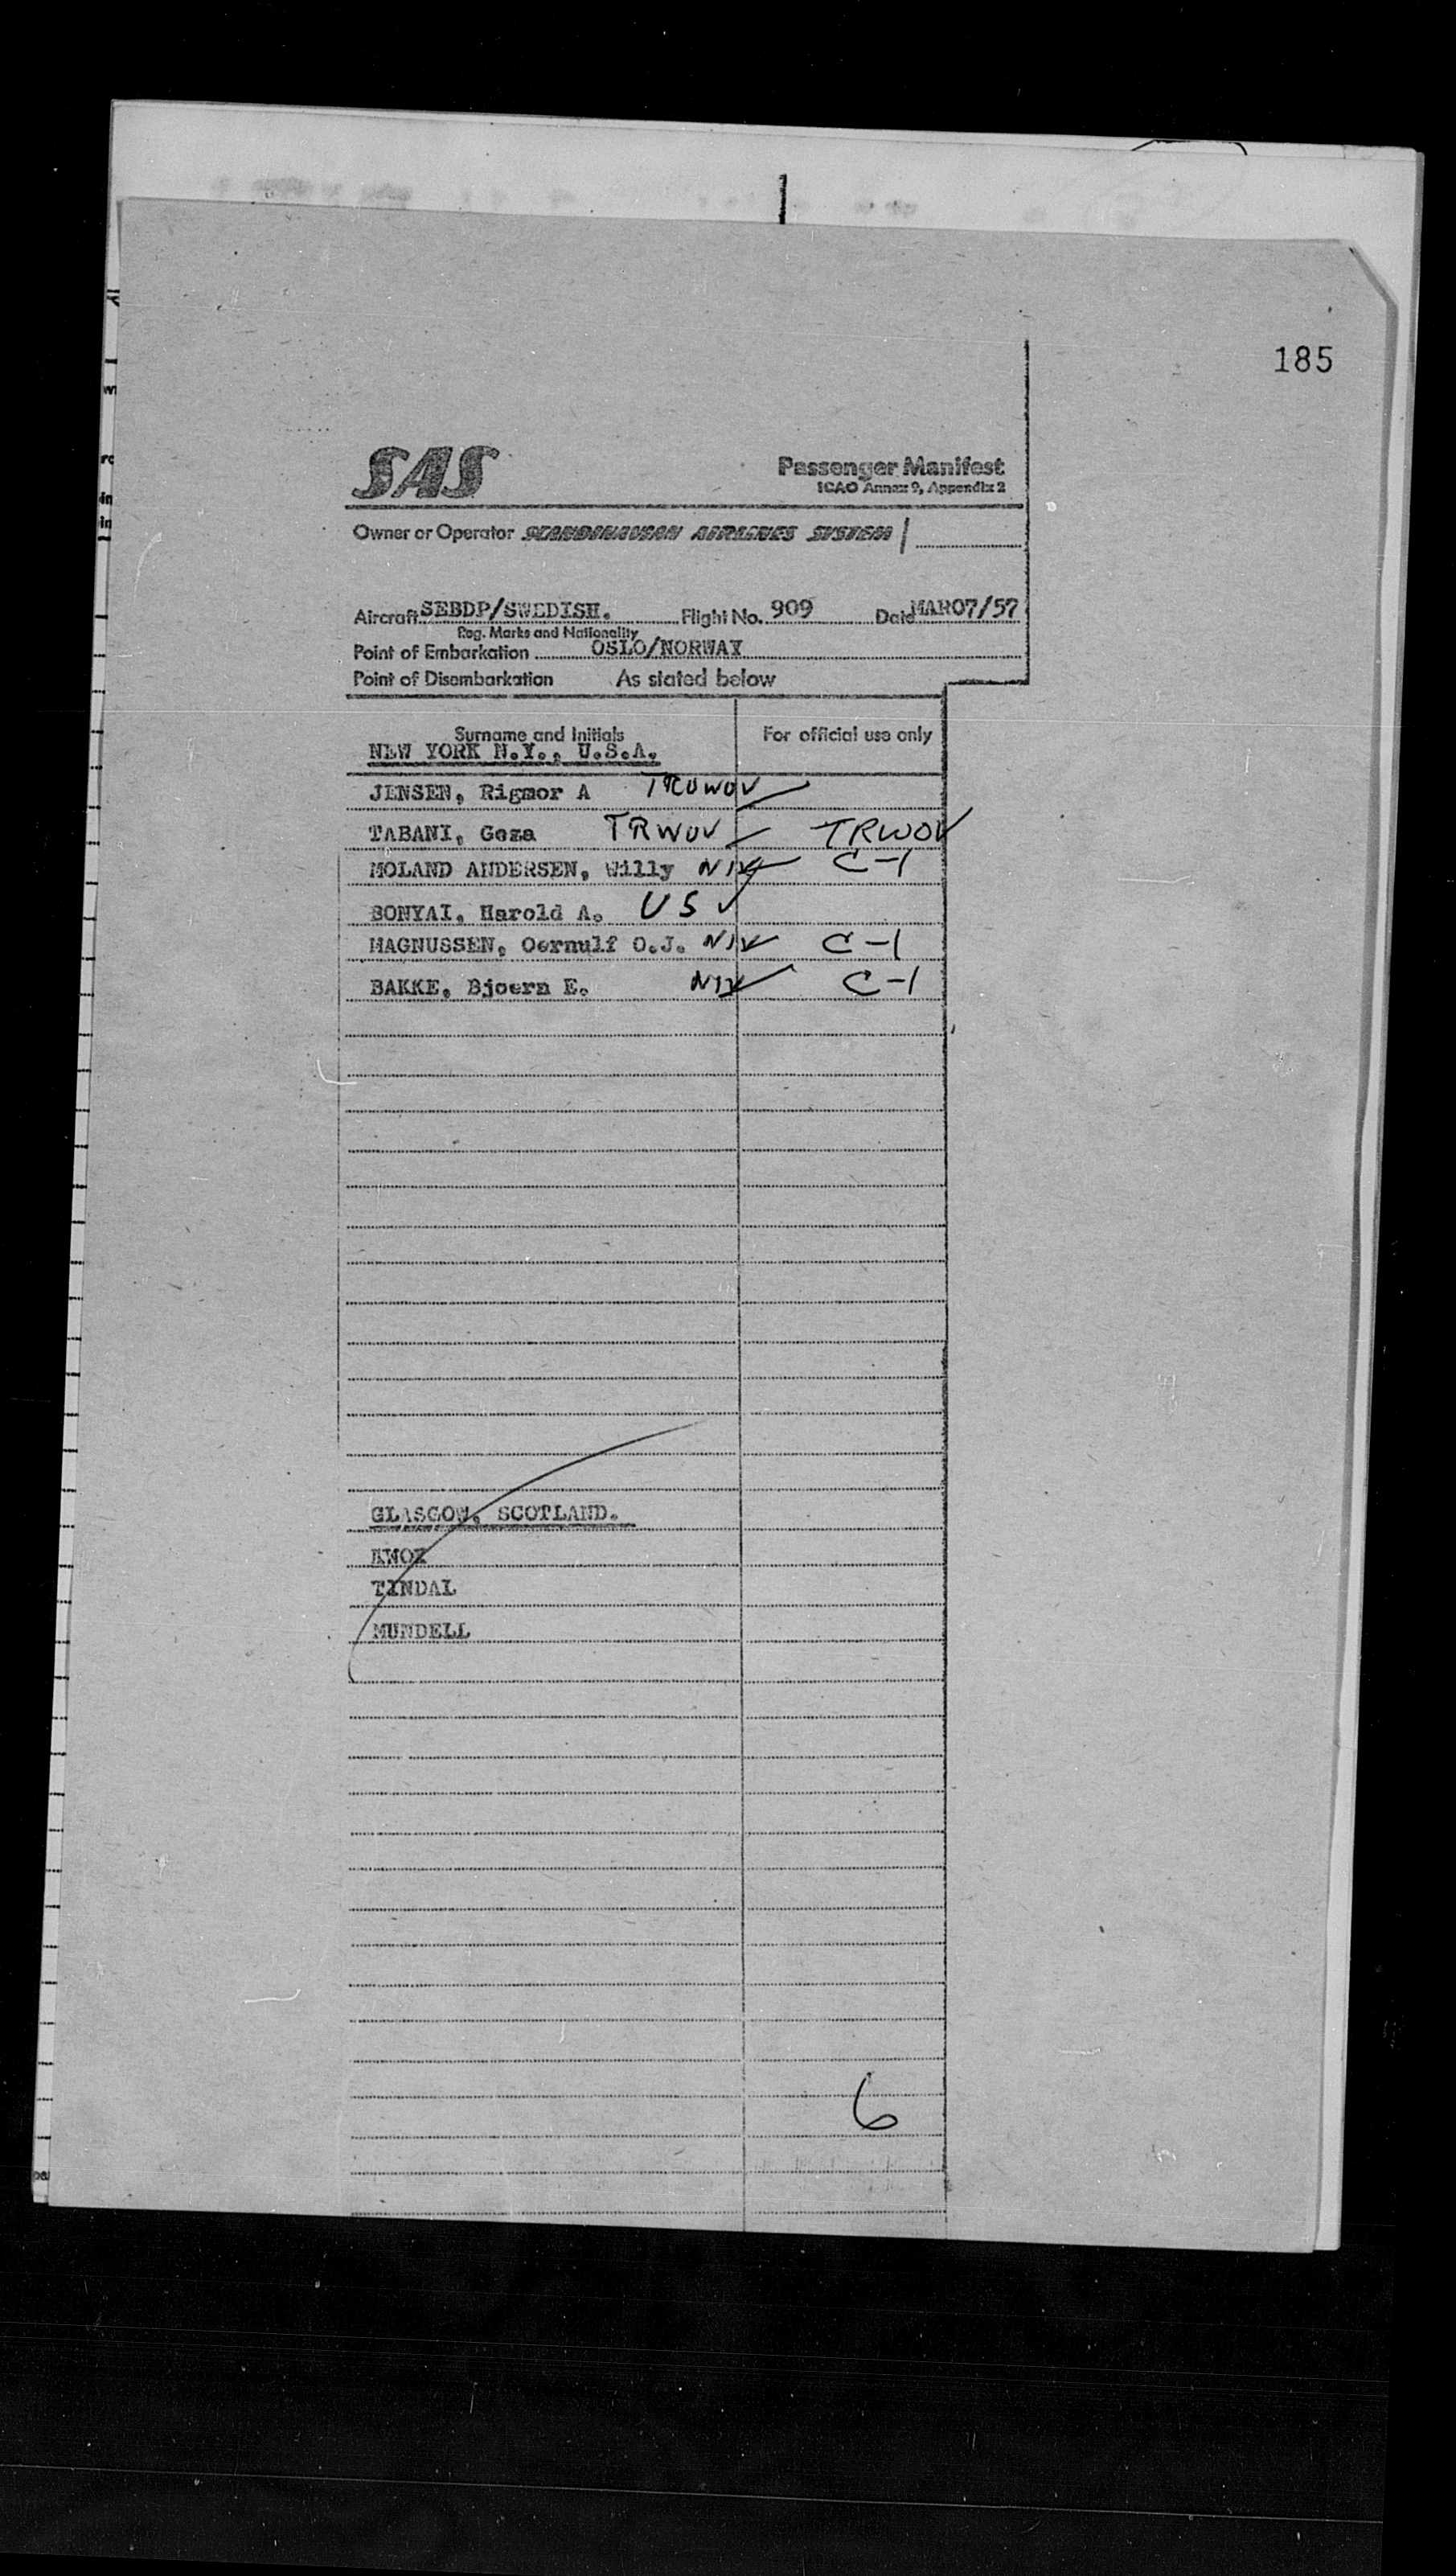 185
SAS
Passenger Manifest
ICAO Annex 9, Appendix 2
Owner or Operator SCANDINAVIAN AIRLINES SYSTEM
Aircraft SEBDP/SWEDISH. Flight No. 909 Date MAR07/57
Reg. Marks and Nationality
Point of Embarkation OSLO/NORWAY
Point of Disembarkation As stated below
Surname and Initials For official use only
NEW YORK N.Y., U.S.A.
JENSEN, Rigmor A TROWOV
TABANI, Geza TRWOV TRWOV
MOLAND ANDERSEN, Willy NIV C-1
BONYAI, Harold A. US
MAGNUSSEN, Oernulf O.J. NIV C-1
BAKKE, Bjoern E. NIV C-1
GLASGOW, SCOTLAND.
TINDAL
MUNDELL
6